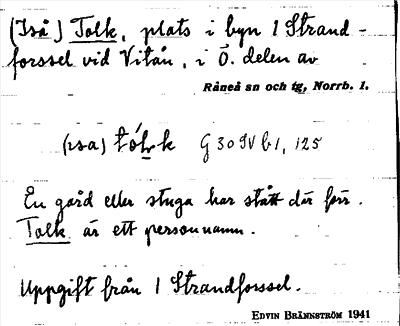 (Iså) Tolk, plats i byn 1 Strand-
forssel vid Vitån, i Ö. delen av
Råneå sn och tg, Norrb. l.
(ısa) tólk G 30 IV b 1, 125
En gård eller stuga har stått där förr.
Tolk är ett personnamn.
Uppgift från 1 Strandforssel.
EDVIN BRÄNNSTRÖM 1941